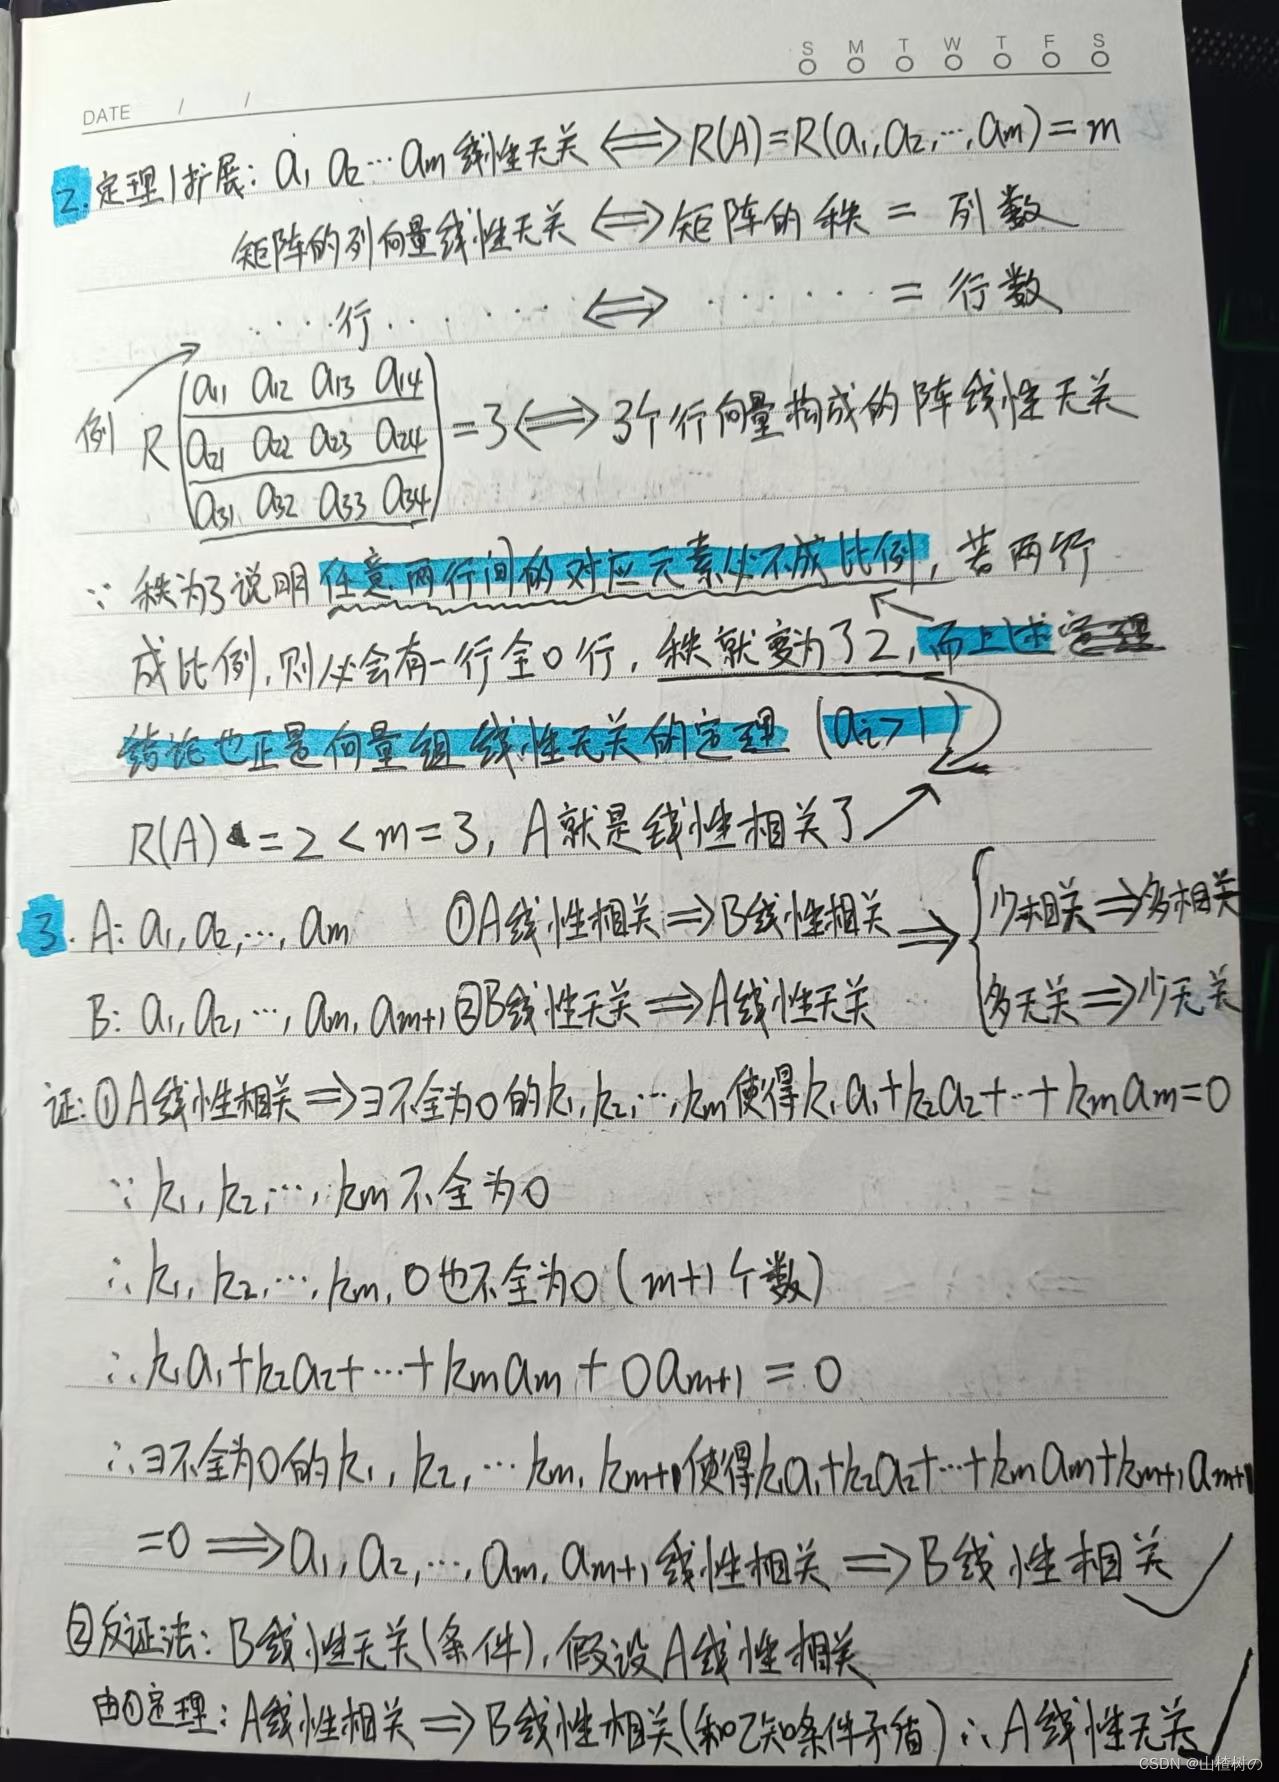 S M T W T F S
DATE / /
2. 定理1扩展: a₁ a₂ … aₘ 线性无关 ⟺ R(A)=R(a₁,a₂,…,aₘ)=m
矩阵的列向量线性无关 ⟺ 矩阵的秩 = 列数
····行······ ⟺ ······ = 行数
例 R(a₁₁ a₁₂ a₁₃ a₁₄
a₂₁ a₂₂ a₂₃ a₂₄
a₃₁ a₃₂ a₃₃ a₃₄) =3 ⟺ 3个行向量构成的阵线性无关
∵ 秩为3说明任意两行间的对应元素必不成比例, 若两行
成比例, 则必会有一行全0行, 秩就变为了2, 而上述
结论也正是向量组线性无关的定理 (aᵢ>1)
R(A) =2<m=3, A就是线性相关了
3. A: a₁,a₂,…,aₘ ①A线性相关⟹B线性相关 ⟹ {少相关⟹多相关
B: a₁,a₂,…,aₘ,aₘ₊₁ ②B线性无关⟹A线性无关 多无关⟹少无关
证: ①A线性相关⟹∃不全为0的k₁,k₂,…,kₘ使得k₁a₁+k₂a₂+…+kₘaₘ=0
∵ k₁,k₂,…,kₘ不全为0
∴ k₁,k₂,…,kₘ,0也不全为0 (m+1个数)
∴ k₁a₁+k₂a₂+…+kₘaₘ+0aₘ₊₁=0
∴ ∃不全为0的k₁,k₂,…kₘ,kₘ₊₁使得k₁a₁+k₂a₂+…+kₘaₘ+kₘ₊₁aₘ₊₁
=0⟹a₁,a₂,…,aₘ,aₘ₊₁线性相关⟹B线性相关
②反证法: B线性无关(条件), 假设A线性相关
由①定理: A线性相关⟹B线性相关(和已知条件矛盾) ∴A线性无关
CSDN @山楂树の